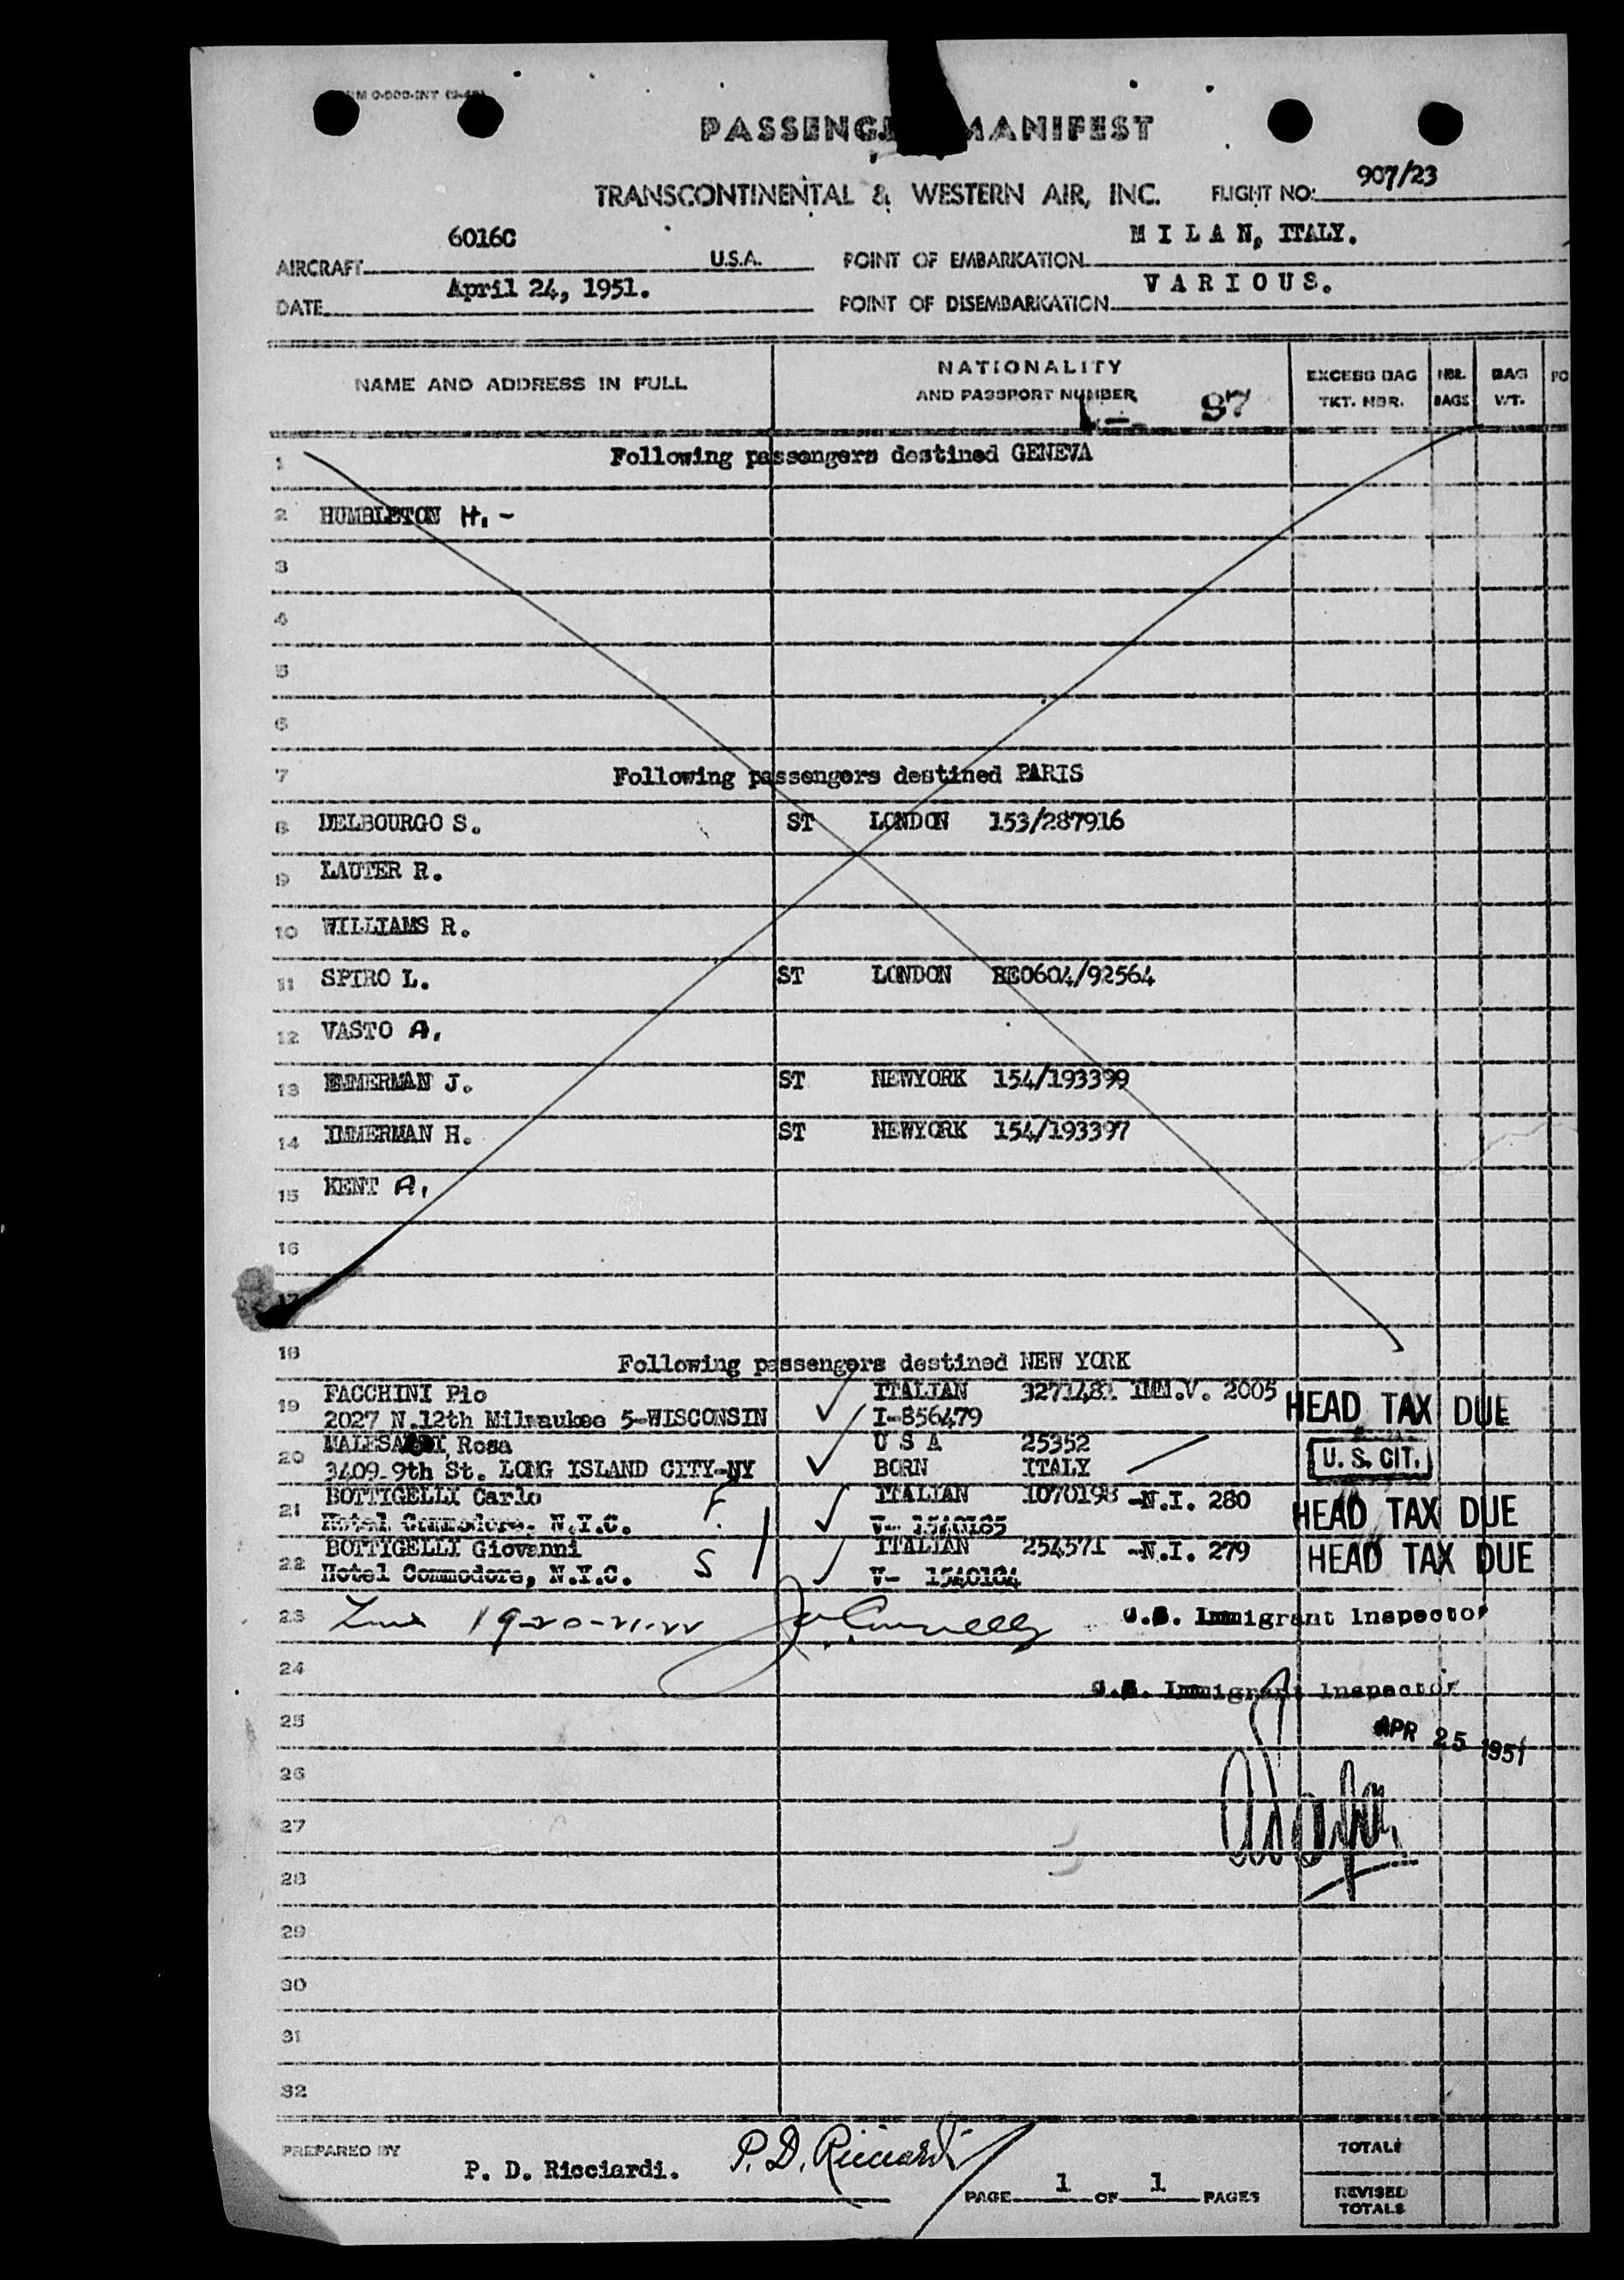 PASSENG MANIFEST
TRANSCONTINENTAL & WESTERN AIR, INC. FLIGHT NO: 907/23
AIRCRAFT 6016C U.S.A. POINT OF EMBARKATION M I L A N, ITALY.
DATE April 24, 1951. POINT OF DISEMBARKATION V A R I O U S.
NAME AND ADDRESS IN FULL NATIONALITY AND PASSPORT NUMBER EXCESS BAG TKT. NBR. NBR. BAGS BAG WT. PO
87
1 Following passengers destined GENEVA
2 HUMBLETON H. -
3
4
5
6
7 Following passengers destined PARIS
8 DELBOURGO S. ST LONDON 153/287916
9 LAUTER R.
10 WILLIAMS R.
11 SPIRO L. ST LONDON BE0604/92564
12 VASTO A.
13 EMMERMAN J. ST NEWYORK 154/193399
14 IMMERMAN H. ST NEWYORK 154/193397
15 KENT A.
16
17
18 Following passengers destined NEW YORK
19 FACCHINI Pio ITALIAN 3271481 IMM.V. 2005 HEAD TAX DUE
2027 N.12th Milwaukee 5-WISCONSIN I-856479
20 Rosa U S A 25352 U. S. CIT.
3409-9th St. LONG ISLAND CITY-NY BORN ITALY
21 BOTTIGELLI Carlo F ITALIAN 1070198 -N.I. 280 HEAD TAX DUE
Hotel Commodore, N.Y.C. V- 1540185
22 BOTTIGELLI Giovanni S ITALIAN 254571 -N.I. 279 HEAD TAX DUE
Hotel Commodore, N.Y.C. V- 1540184
23 19-20-21-22 U.S. Immigrant Inspector
24 U.S. Immigrant Inspector
25 APR 25 1951
26
27
28
29
30
31
32
PREPARED BY P. D. Ricciardi. P. D. Ricciardi PAGE 1 OF 1 PAGES
TOTALS
REVISED TOTALS